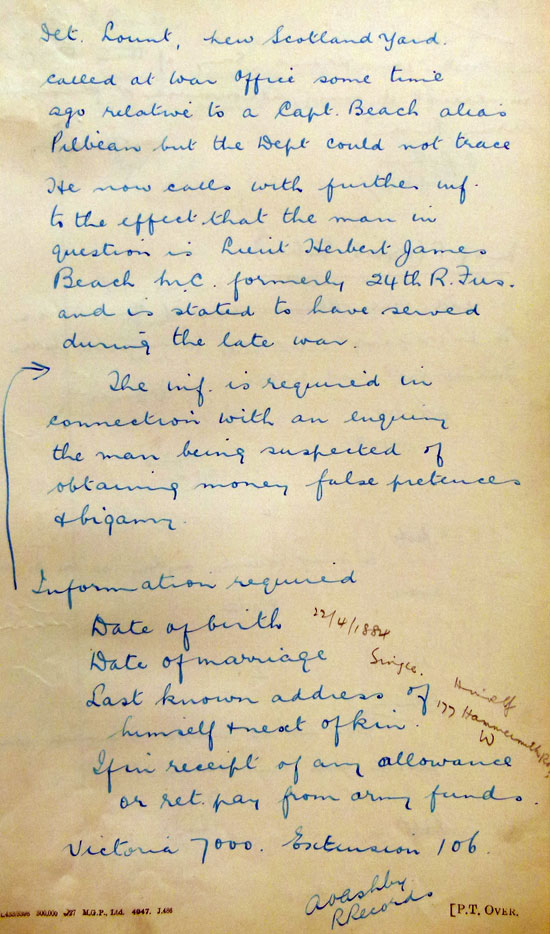 Det. Lount, New Scotland Yard.
called at War Office some time
ago relative to a Capt. Beach alias
Pilbean but the Dept could not trace
He now calls with further inf.
to the effect that the man in
question is Lieut Herbert James
Beach M.C. formerly 24th R. Fus.
and is stated to have served
during the late war.
The inf. is required in
connection with an enquiry
the man being suspected of
obtaining money false pretences
& bigamy.
Information required
Date of birth 22/4/1884
Date of marriage Single.
Last known address of Himself
himself & next of kin. 177 Hammersmith Rd
W
If in receipt of any allowance
or ret. pay from army funds.
Victoria 7000. Extension 106.
A V Ashby
R Records
300,000 M.G.P., Ltd. 4947. J.
[P.T. OVER.